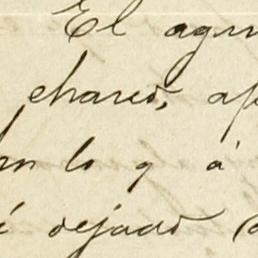 El agu
charco, ap
lo q á
dejado